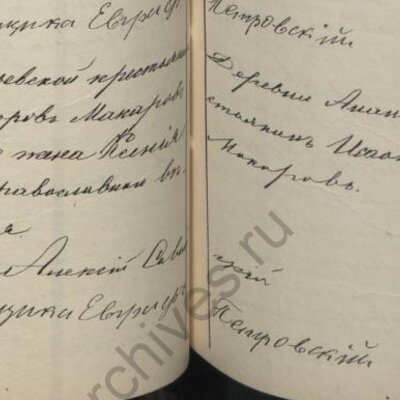 щика Евграфъ
евской крестьянинъ
оровъ Макаровъ
жена Ксенія
православнаго вѣ
Алексій Сави
щика Евграфъ
Петровскій
Деревни Анан
стьянинъ Исаа
Макаровъ.
гій
Петровскій
archives.ru